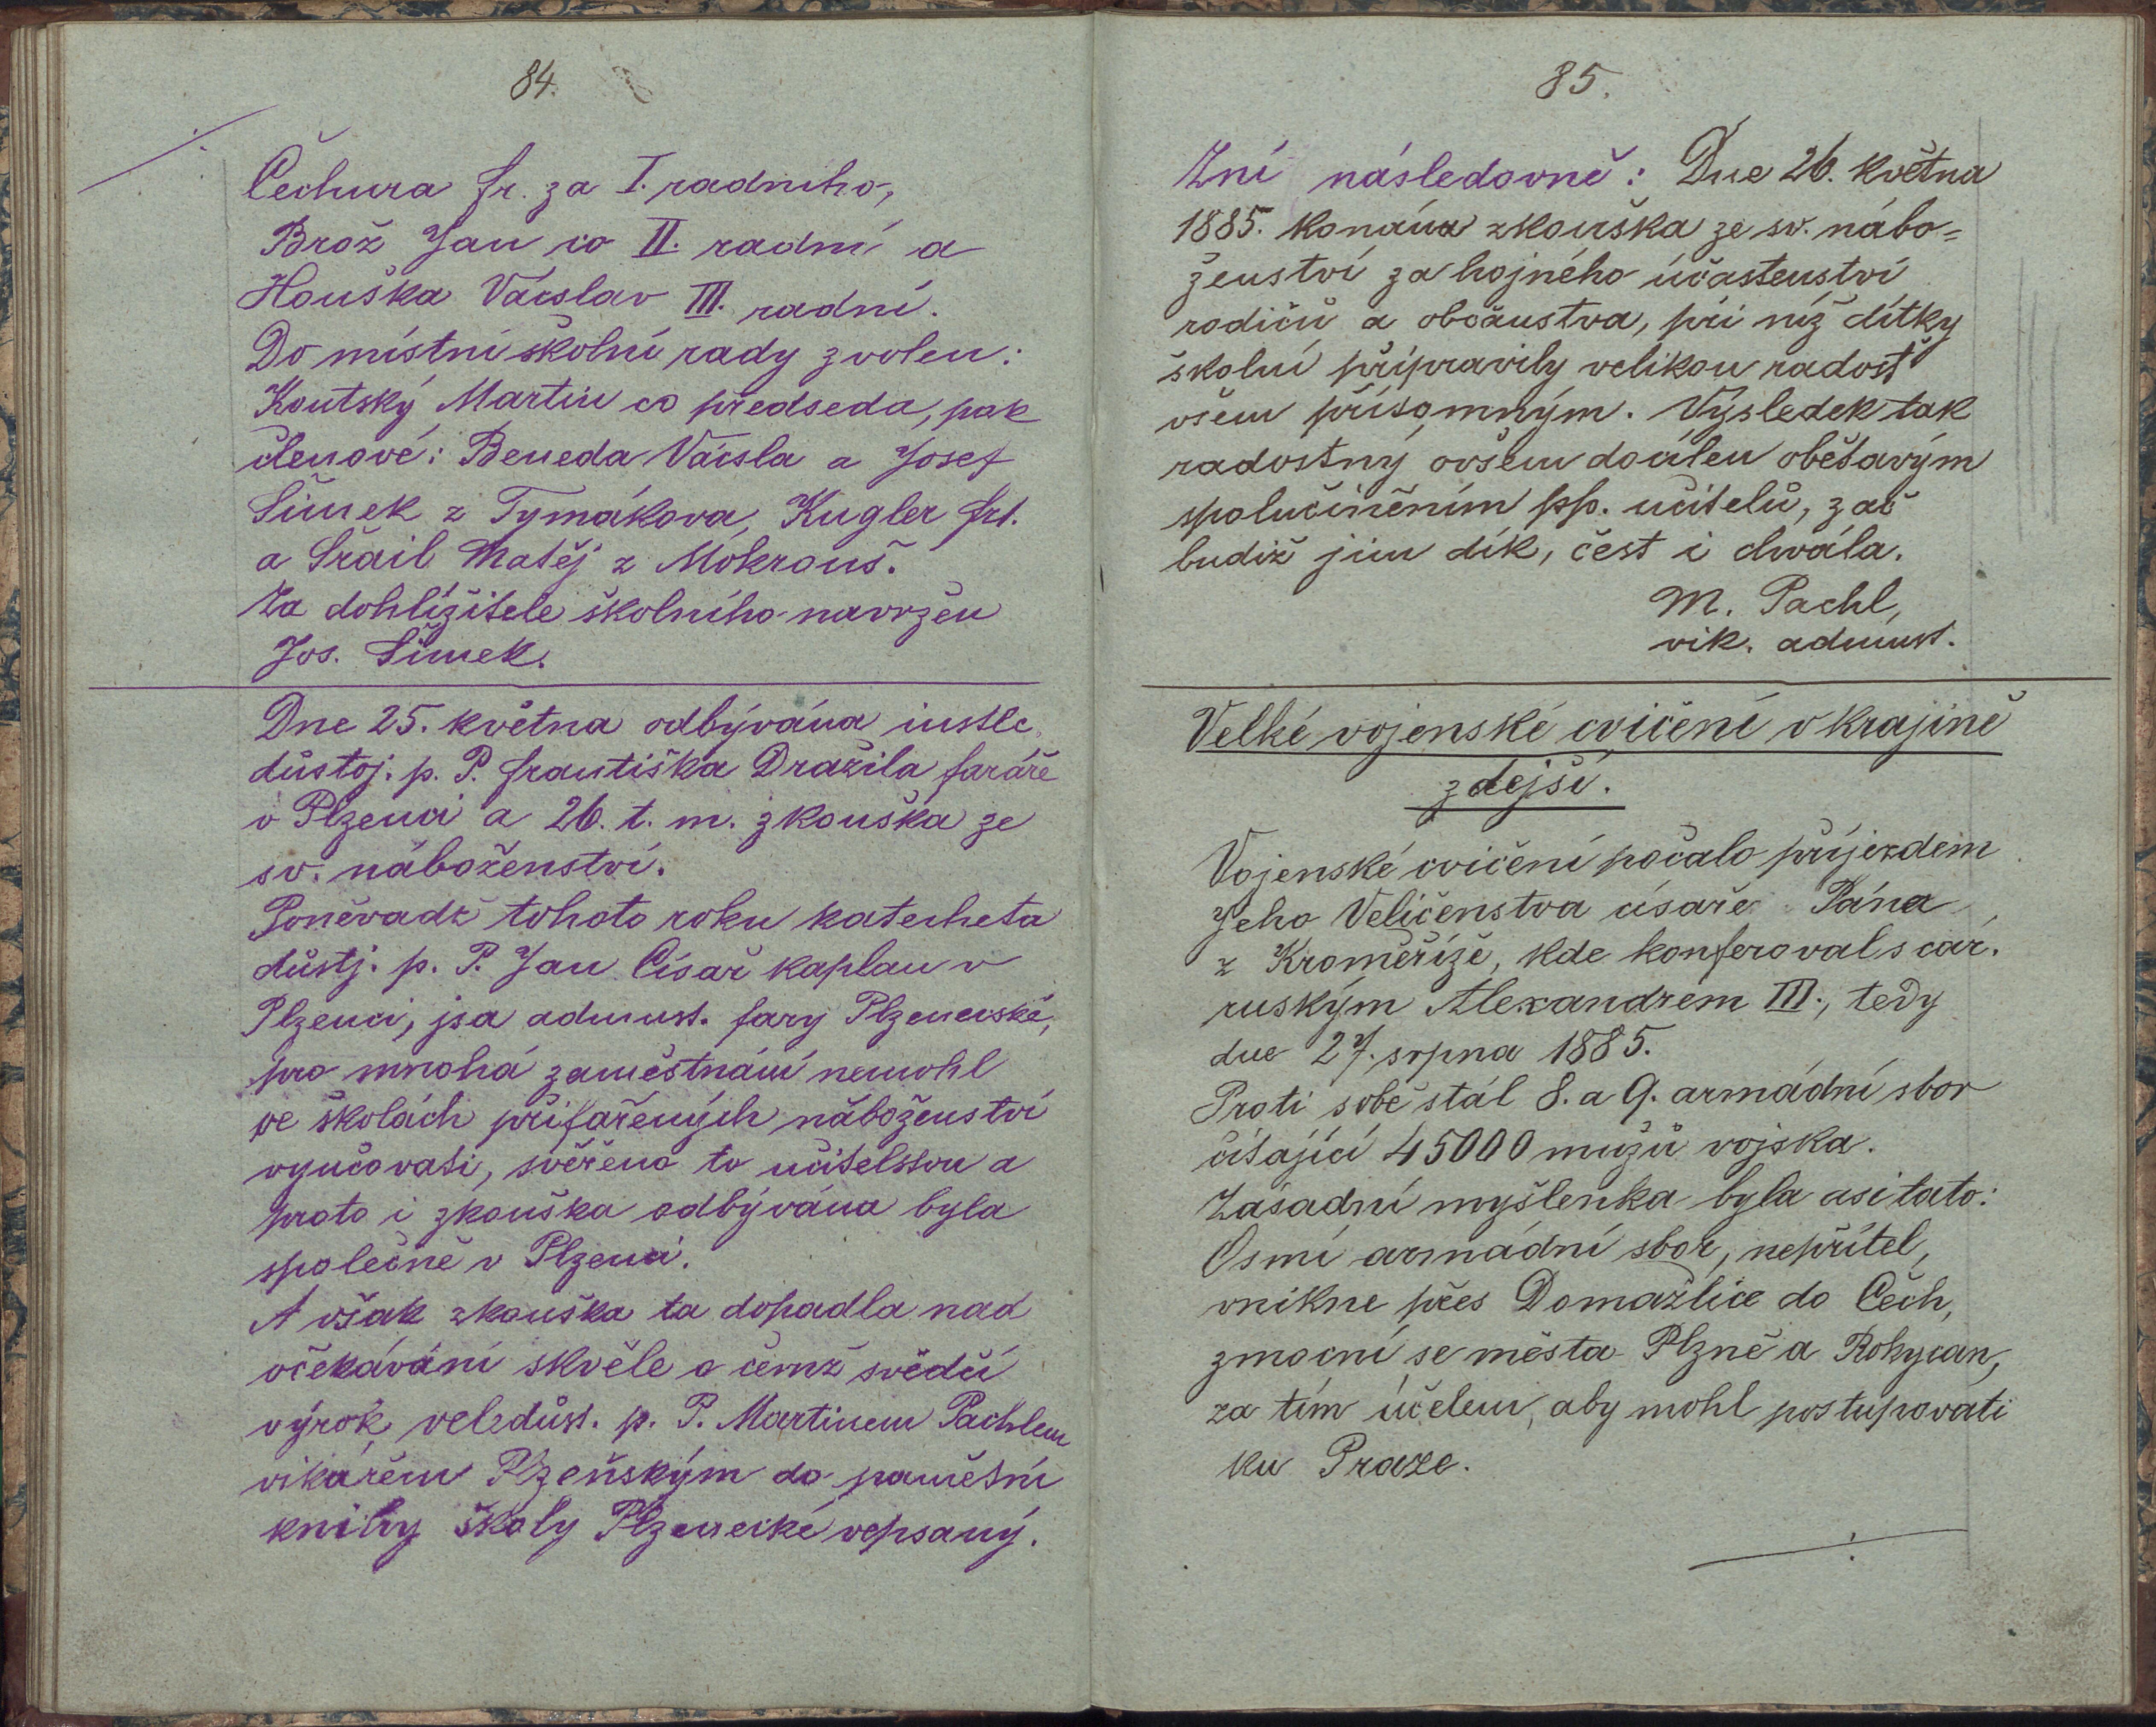 84.
Čechura fr. za I. radního,
Brož Jan co II. radní a
Houška Václav III. radní.
Do místní školní rady zvolen:
Koutský Martin co předseda, pak
členové: Beneda Václa a Josef
Šimek z Tymákova, Kugler frt.
a Šrail Matěj z Mokrouš.
Za dohlížitele školního navržen
Jos. Šimek.
Dne 25. května odbývána instlc.
důstoj. p. P. františka Dražila faráře
v Plzenci a 26. t. m. zkouška ze
sv. náboženství.
Poněvadž tohoto roku katecheta
důstj. p. P. Jan Císař kaplan v
Plzenci, jsa admnst. fary Plzenecské,
pro mnohá zaměstnání nemohl
ve školách přifařených náboženství
vyučovati, svěřeno to učitelstvu a
proto i zkouška odbývána byla
společně v Plzenci.
A však zkouška ta dopadla nad
očekávání skvěle o čemž svědčí
výrok veledůst. p. P. Martinem Pachlem
vikářem Plzeňským do pamětní
knihy školy Plzenecké vepsaný.
85.
Zní následovně: Dne 26. května
1885. konána zkouška ze sv. nábo=
ženství za hojného účastenství
rodičů a občanstva, při níž dítky
školní připravily velikou radosť
všem přísomným. Výsledek tak
radostný ovšem docílen obětavým
spolučiněním pp. učitelů, zač
budiž jim dík, čest i chvála.
M. Pachl,
vik. admnst.
Velké vojenské cvičení v krajině
zdejší.
Vojenské cvičení počalo příjezdem
Jeho Veličenstva císaře Pána
z Kroměříže, kde konferoval s car.
ruským Alexandrem III., tedy
dne 27. srpna 1885.
Proti sobě stál 8. a 9. armádní sbor
čítající 45000 mužů vojska.
Zásadní myšlenka byla asi tato:
Osmí armádní sbor, nepřítel,
vnikne přes Domažlice do Čech,
zmocní se města Plzně a Rokycan,
za tím účelem, aby mohl postupovati
ku Praze.